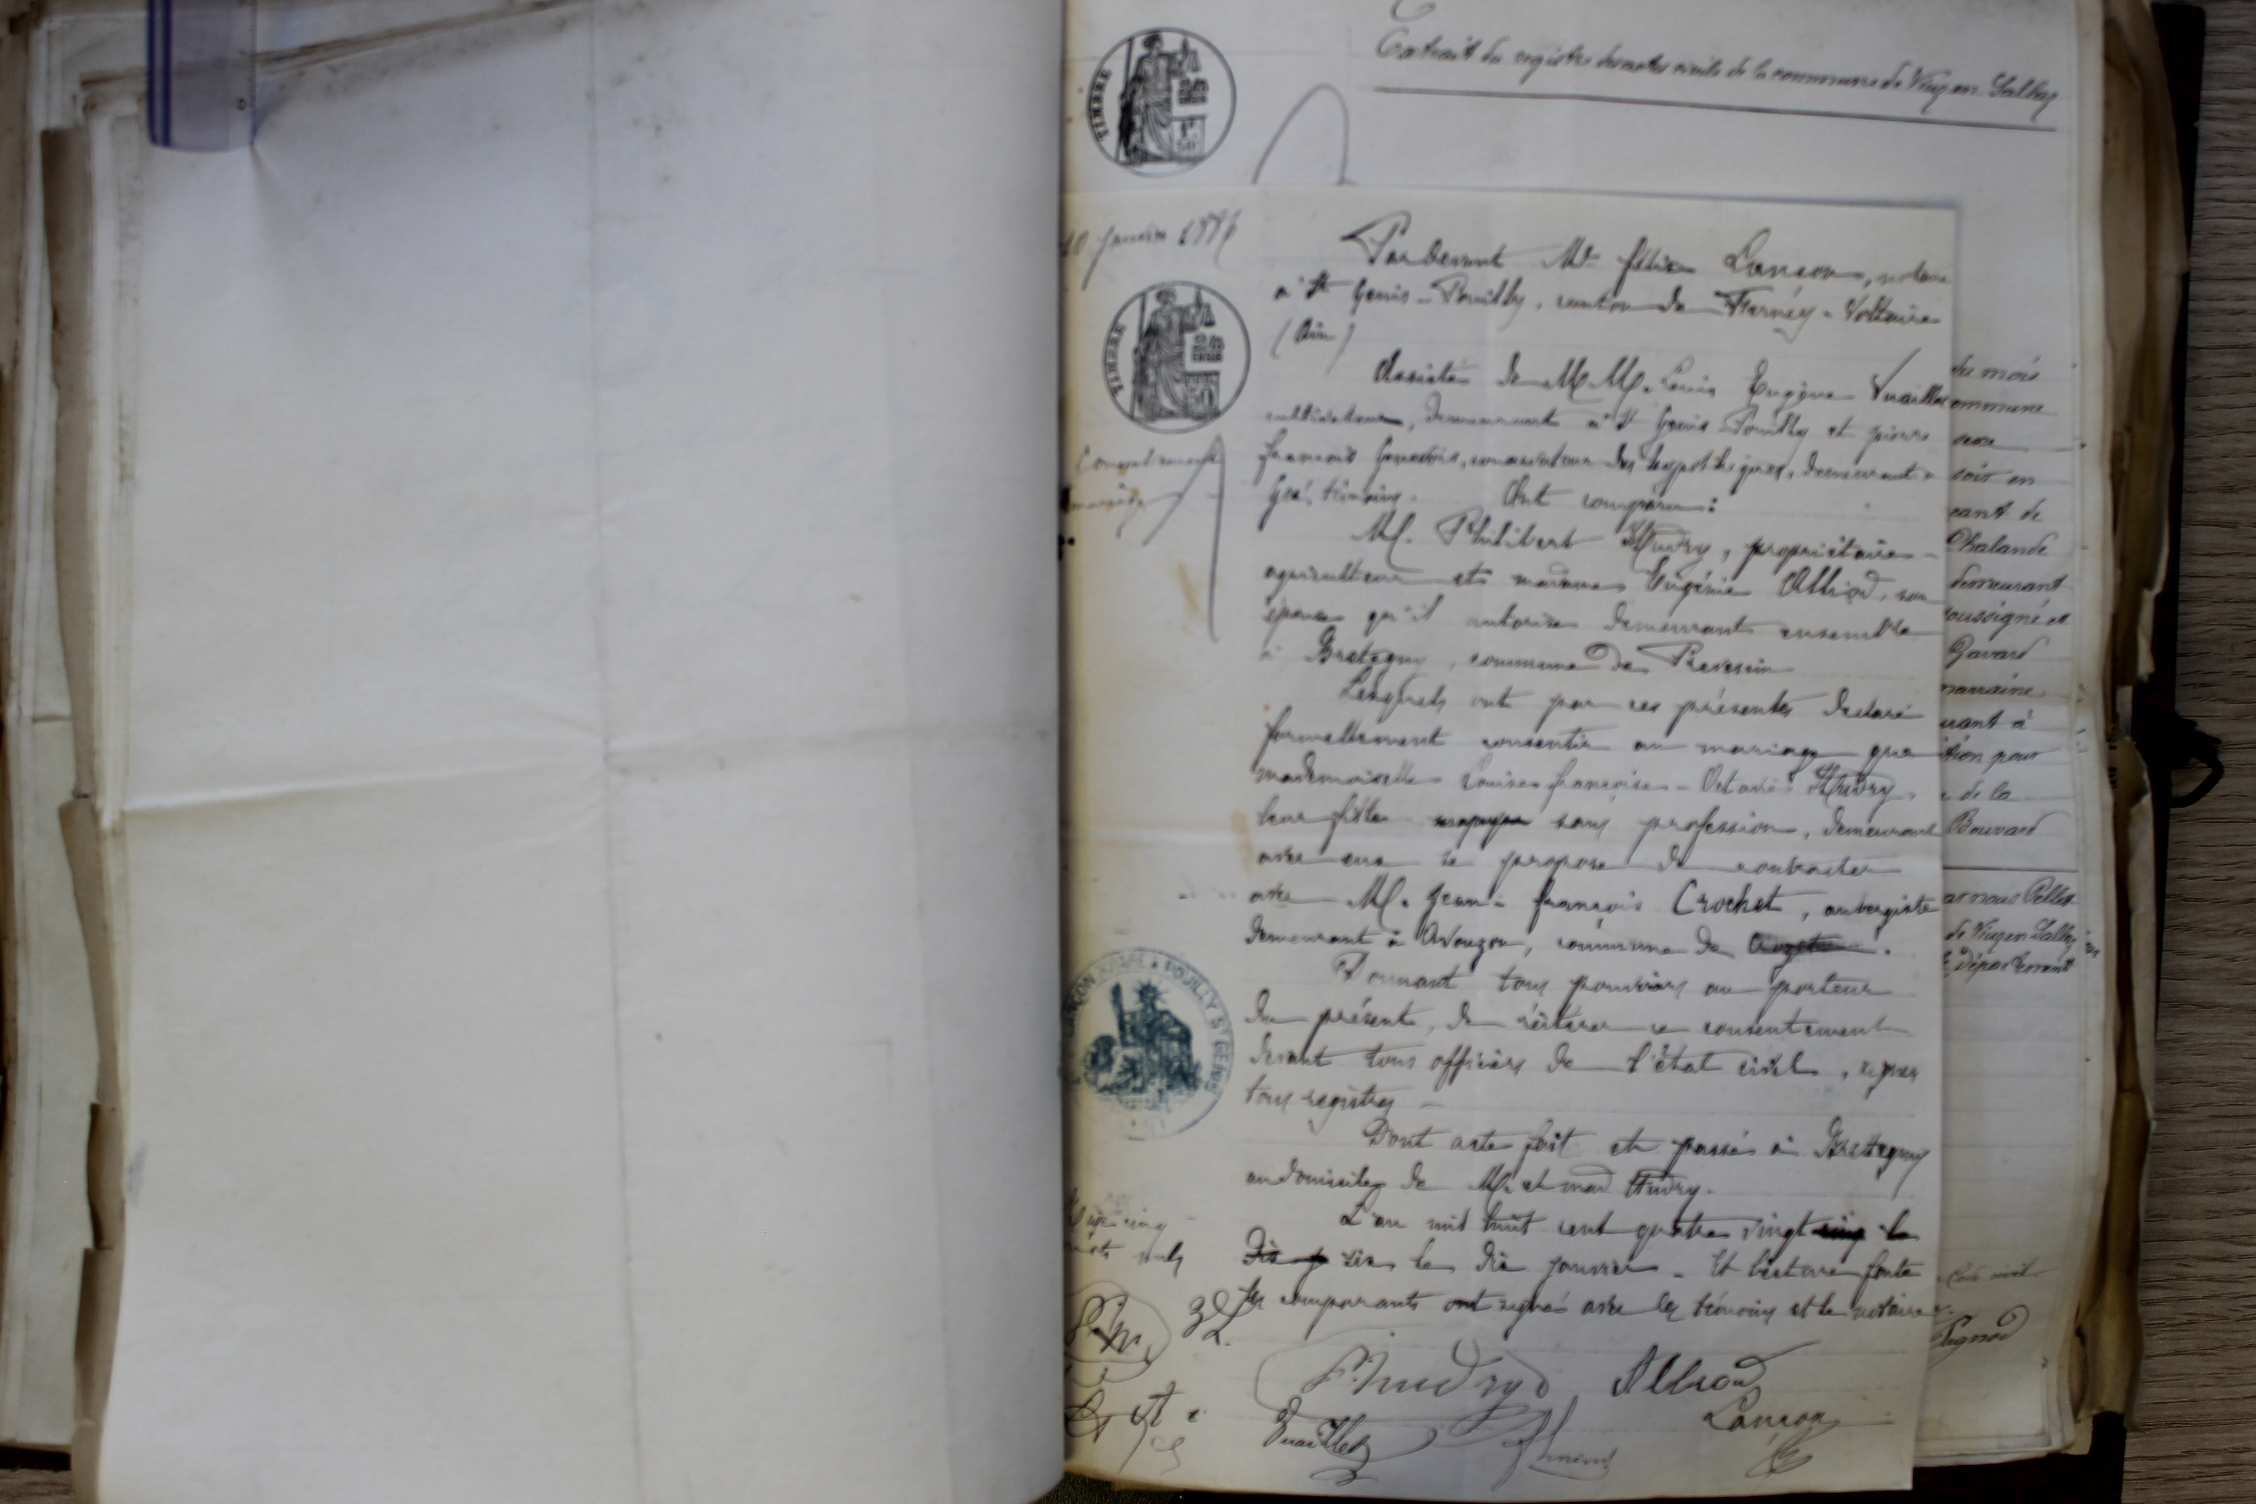 Extrait du registre des actes civils de la commune de Viuz en Sallaz
TIMBRE
10 Janvier 1886
Pardevant Me félix Lançon, notaire
à St Genis-Pouilly, canton de Ferney-Voltaire
(Ain)
TIMBRE
Assisté de MM. Louis Eugène Vuaillet
cultivateur, demeurant à St Genis Pouilly et pierre
françois, conservateur des hypothèques, demeurant à
Gex, témoins. Ont comparu:
Consentement
mariage
M. Philibert Hudry, propriétaire
agriculteur et madame Eugénie Alliod, son
épouse qu'il autorise demeurant ensemble
à Bretegny, commune de Prevessin
Lesquels ont par ces présentes déclaré
formellement consentir au mariage que
mademoiselle Louise françoise-Octavie Hudry,
leur fille sans profession, demeurant
avec eux se propose de contracter
avec M. Jean-françois Crochet, aubergiste
demeurant à Avouzon, commune de
Donnant tous pouvoirs au porteur
du présent, de réitérer ce consentement
devant tous officiers de l'état civil, signer
tous registres
LANÇON NOTAIRE A POUILLY ST GENIS
Dont acte fait et passé à Brettegny
au domicile de M. et mad Hudry.
L'an mil huit cent quatre vingt cinq le
Dix j six le dix janvier - Et lecture faite
les comparants ont signé avec les témoins et le notaire
cinq
mots nuls
P. hudry Alliod
Vuaillet
Lançon
du mois
commune
soir en
demeurant
soussigné et
Gavard
urant à
tion pour
de la
Bouvard
ar nous Pellet
de Viuz en Sallaz
Département